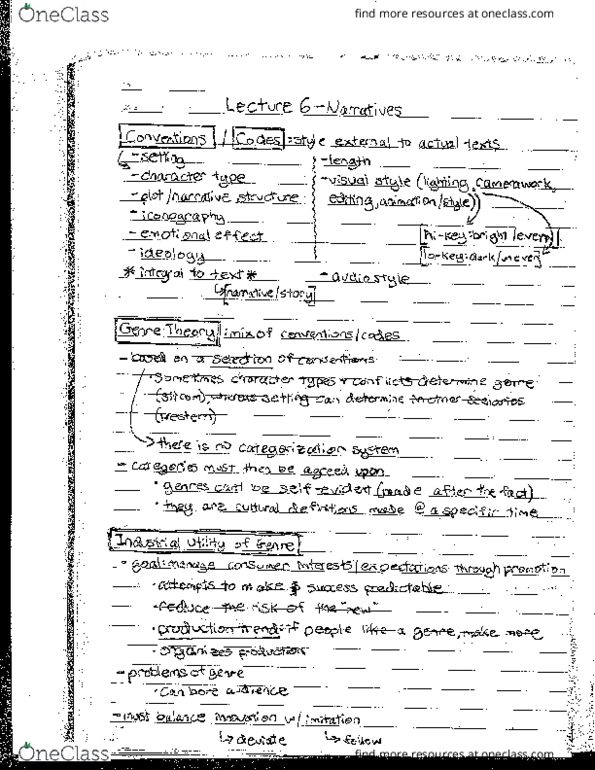 OneClass
find more resources at oneclass.com
Lecture 6-Narratives
Conventions / Codes: style external to actual texts
-setting
-length
-character type
-visual style (lighting, camerawork,
-plot/narrative structure
editing, animation/style)
-iconography
hi-key: bright/even
-emotional effect
lo-key: dark/uneven
-ideology
*integral to text*
-audio style
narrative/story
Genre Theory: mix of conventions/codes
-based on a selection of conventions
•Sometimes character types + conflicts determine genre
(sitcom), whereas setting can determine in other scenarios
(western)
there is no categorization system
-categories must then be agreed upon
•genres can't be self-evident (made after the fact)
•they are cultural definitions made @ a specific time
Industrial Utility of Genre
-goal: manage consumer interests/expectations through promotion
•attempts to make $ success predictable
•reduce the risk of the "new"
•production trend: if people like a genre, make more
•organizes production
-problems of genre
•can bore audience
-must balance innovation w/ imitation
↳ deviate ↳ follow
OneClass
find more resources at oneclass.com